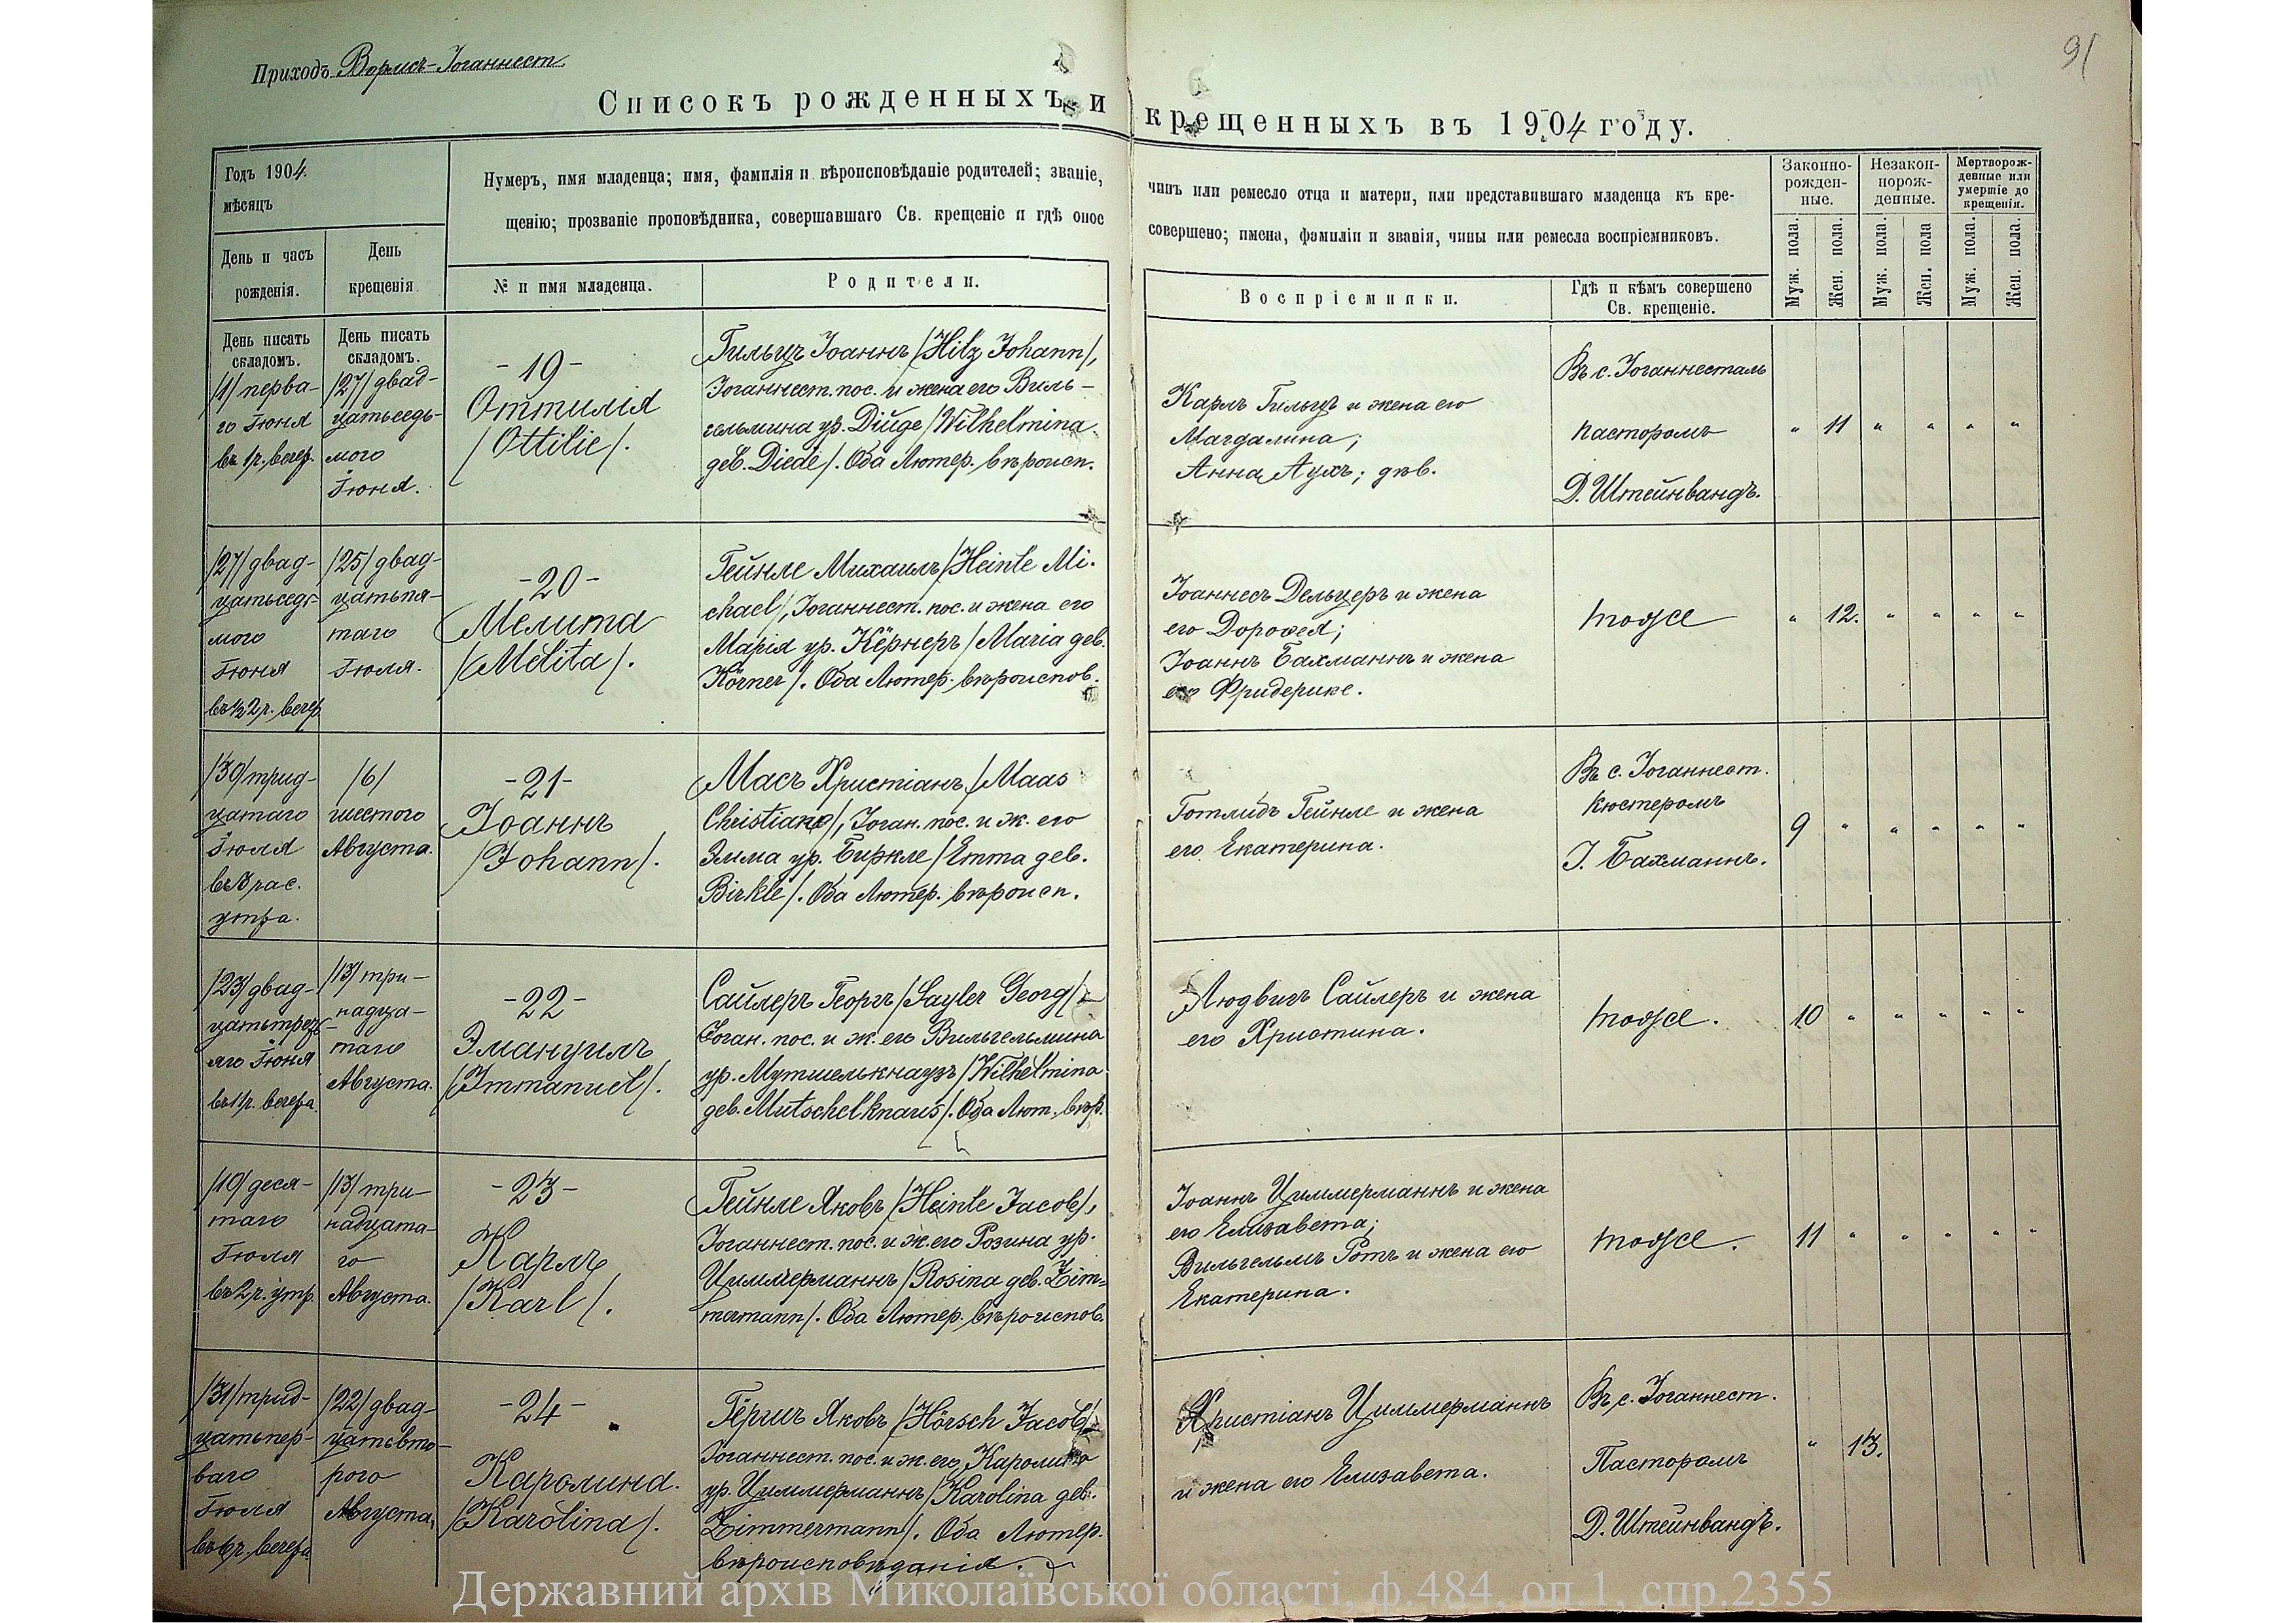 Приходъ Вормсъ-Іоганнест.
91
Списокъ рожденныхъ и крещенныхъ въ 1904 году.
Годъ 1904.
мѣсяцъ
День и часъ
рожденія.
День
крещенія.
Нумеръ, имя младенца; имя, фамилія и вѣроисповѣданіе родителей; званіе, чинъ или ремесло отца и матери, или представившаго младенца къ кре-
щенію; прозваніе проповѣдника, совершавшаго Св. крещеніе и гдѣ оное совершено; имена, фамиліи и званія, чины или ремесла воспріемниковъ.
№ и имя младенца.
Родители.
Воспріемники.
Гдѣ и кѣмъ совершено
Св. крещеніе.
Законно-
рожден-
ные.
Незакон-
норож-
денные.
Мертворож-
денные или
умершіе до
крещенія.
Муж. пола.
Жен. пола.
Муж. пола.
Жен. пола
Муж. пола.
Жен. пола.
День писать
складомъ.
/1/ перва-
го Іюня
въ 1 ч. вечер.
День писать
складомъ.
/27/ двад-
цатьседь-
мого
Іюня.
-19-
Оттилія
/Ottilie/.
Гильцъ Іоаннъ /Hilz Johann/,
Іоганнест. пос. и жена его Виль-
гельмина ур. Diüge /Wilhelmina
geb. Diede/. Оба Лютер. вѣроисп.
Карлъ Гильцъ и жена его
Магдалина;
Анна Аухъ; дѣв.
Въ с. Іоганнесталь
пасторомъ
Д. Штейнвандъ.
" 11 " " " "
/27/ двад-
цатьседь-
мого
Іюня
въ ½2 ч. вечер.
/25/ двад-
цатьпя-
таго
Іюля.
-20-
Мелита
/Melita/.
Гейнле Михаилъ /Heinle Mi-
chael/, Іоганнест. пос. и жена его
Марія ур. Кёрнеръ /Maria geb.
Körner/. Оба Лютер. вѣроиспов.
Іоаннесъ Дельцеръ и жена
его Доровея;
Іоаннъ Бахманнъ и жена
его Фридерике.
тоже
" 12. " " " "
/30/ трид-
цатаго
Іюля
въ 3 час.
утра.
/6/
шестого
Августа.
-21-
Іоаннъ
/Johann/.
Масъ Христіанъ /Maas
Christian/, Іоган. пос. и ж. его
Эмма ур. Биркле /Emma geb.
Birkle/. Оба Лютер. вѣроисп.
Готлибъ Гейнле и жена
его Екатерина.
Въ с. Іоганнест.
Кюстеромъ
І. Бахманнъ.
9 " " " " "
/23/ двад-
цатьтреть-
яго Іюня
въ 11 ч. вечера.
/13/ три-
надца-
таго
Августа.
-22-
Эмануилъ
/Immanuel/.
Сайлеръ Георгъ /Sayler Georg/
Іоган. пос. и ж. его Вильгельмина
ур. Мутшелькнаузъ /Wilhelmina
geb. Mutschelknaus/. Оба Лют. вѣр.
Людвигъ Сайлеръ и жена
его Христина.
тоже.
10 " " " " "
/10/ деся-
таго
Іюля
въ 2 ч. утр.
/13/ три-
надцата-
го
Августа.
-23-
Карлъ
/Karl/.
Гейнле Яковъ /Heinle Jacob/,
Іоганнест. пос. и ж. его Розина ур.
Циммерманнъ /Rosina geb. Zim-
mermann/. Оба Лютер. вѣроиспов.
Іоаннъ Циммерманнъ и жена
его Елизавета;
Вильгельмъ Ротъ и жена его
Екатерина.
тоже.
11 " " " " "
/31/ трид-
цатьпер-
ваго
Іюля
въ 6 ч. вечера.
/22/ двад-
цатьвто-
рого
Августа.
-24-
Каролина.
/Karolina/.
Гёршъ Яковъ /Hörsch Jacob/
Іоганнест. пос. и ж. его Каролина
ур. Циммерманнъ /Karolina geb.
Zimmermann/. Оба Лютер.
вѣроисповѣданія.
Христіанъ Циммерманнъ
и жена его Елизавета.
Въ с. Іоганнест.
Пасторомъ
Д. Штейнвандъ.
" 13.
Державний архів Миколаївської області, ф.484, оп.1, спр.2355